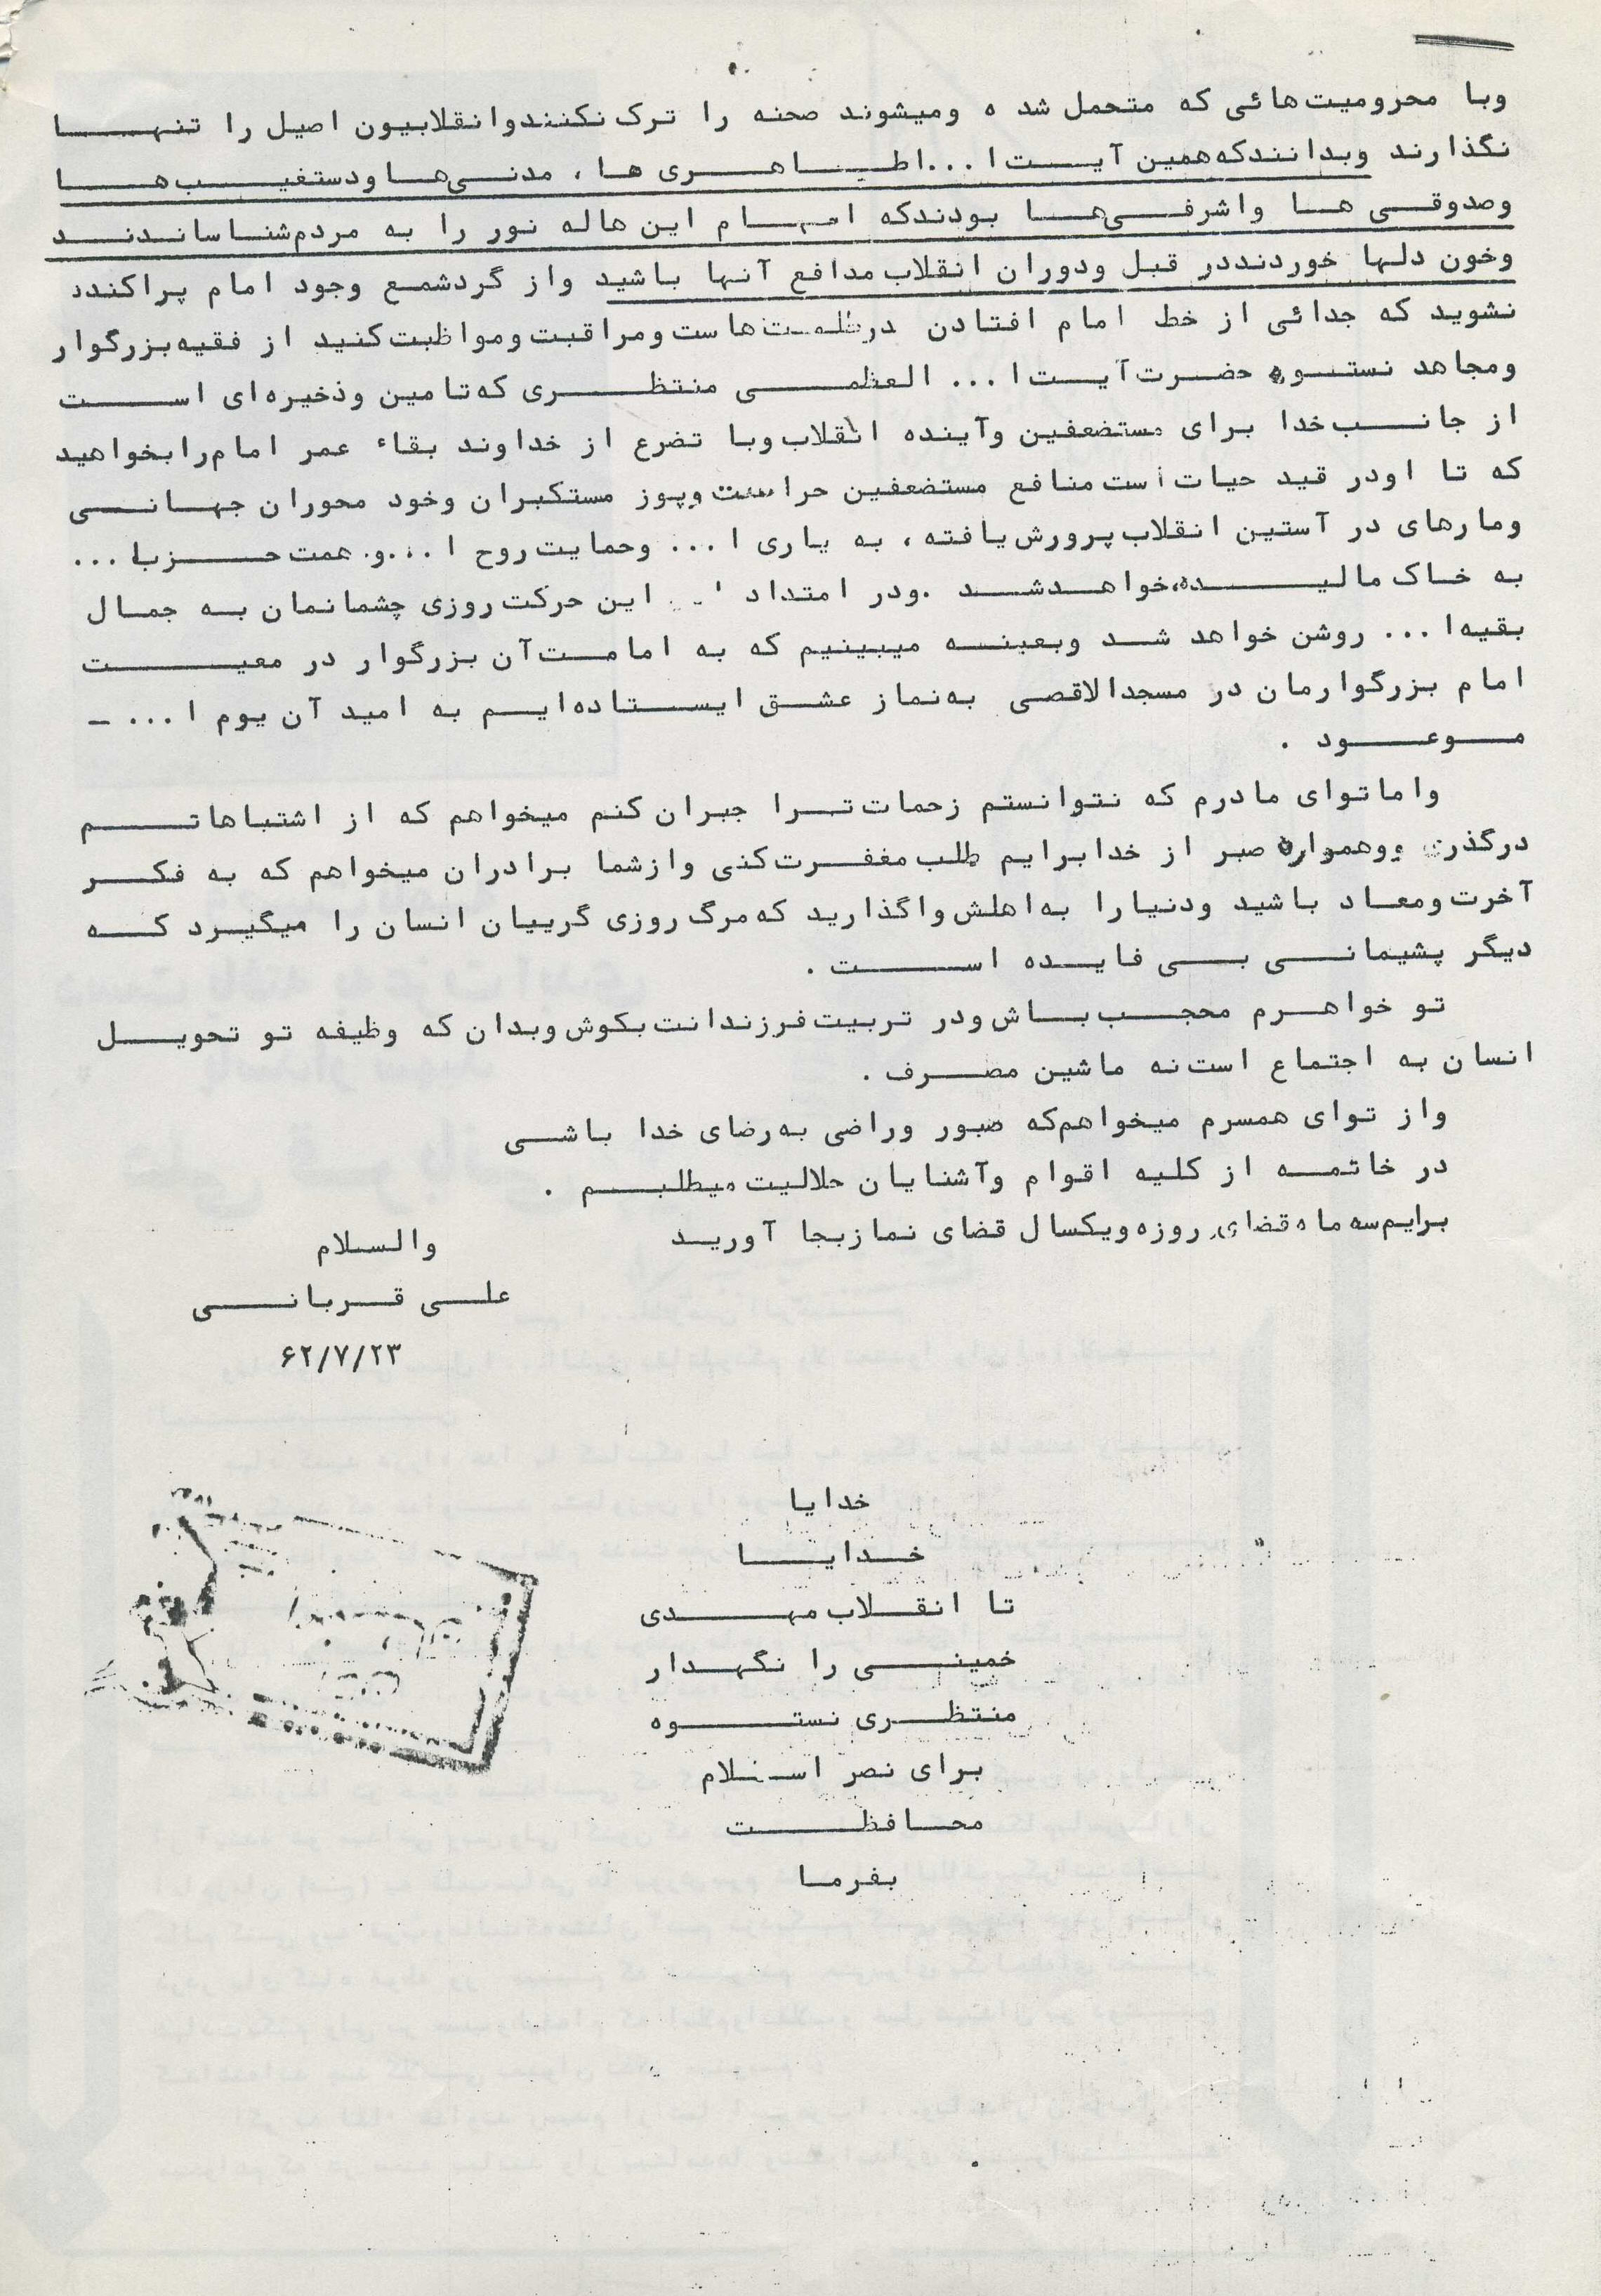 وبا محرومیت‌هائی که متحمل شده ومیشوند صحنه را ترک نکنند وانقلابیون اصیل را تنها
نگذارند وبدانند که همین آیت‌ا... اطـاهری ها، مدنی‌ها ودستغیب‌ها
وصدوقی ها واشرفی‌ها بودند که امام این هاله نور را به مردم شناساندند
وخون دلها خوردند در قبل ودوران انقلاب مدافع آنها باشید واز گرد شمع وجود امام پراکنده
نشوید که جدائی از خط امام افتادن در ظلمت‌هاست ومراقبت ومواظبت کنید از فقیه بزرگوار
ومجاهد نستوه حضرت آیت‌ا... العظمی منتظری که تامین وذخیره‌ای است
از جانب خدا برای مستضعفین وآینده انقلاب وبا تضرع از خداوند بقاء عمر امام را بخواهید
که تا اودر قید حیات است منافع مستضعفین حراست وپوز مستکبران وخود محوران جهانی
ومارهای در آستین انقلاب پرورش یافته، به یاری ا... وحمایت روح ا... و. همت حزب‌ا...
به خاک مالیده خواهد شد .ودر امتداد این حرکت روزی چشمانمان به جمال
بقیه‌ا... روشن خواهد شد وبعینه میبینیم که به امامت آن بزرگوار در معیت
امام بزرگوارمان در مسجدالاقصی به نماز عشق ایستاده‌ایم به امید آن یوم ا... -
موعود .
واما توای مادرم که نتوانستم زحمات ترا جبران کنم میخواهم که از اشتباهاتم
درگذری ووهمواره صبر از خدا برایم طلب مغفرت کنی واز شما برادران میخواهم که به فکر
آخرت ومعاد باشید ودنیا را به اهلش واگذارید که مرگ روزی گریبان انسان را میگیرد که
دیگر پشیمانی بی فایده است .
تو خواهرم محجب باش ودر تربیت فرزندانت بکوش وبدان که وظیفه تو تحویل
انسان به اجتماع است نه ماشین مصرف .
واز توای همسرم میخواهم که صبور وراضی به رضای خدا باشی
در خاتمه از کلیه اقوام وآشنایان حلالیت میطلبم .
برایم سه ماه قضای روزه ویکسال قضای نماز بجا آورید
والسلام
علی قربانی
۶۲/۷/۲۳
خدایا
خدایا
تا انقلاب مهدی
خمینی را نگهدار
منتظری نستوه
برای نصر اسلام
محافظت
بفرما